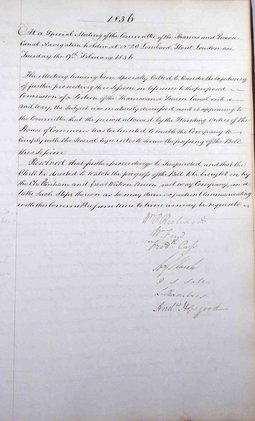 1836
At a Special Meeting of the Committee of the Thames and Severn
Canal Navigation holden at No 20 Lombard Street London on
Tuesday the 9th February 1836
The Meeting having been specially called to consider the expediency
of further proceeding this Session in reference to the proposed
Conversion of a Portion of the Thames and Severn Canal into a
Railway, the Subject was maturely discussed and it appearing to
the Committee that the period allowed by the Standing Orders of the
House of Commons was too limited to enable the Company to
comply with the several requisites to ensure the passing of the Bill
this Session
Resolved that further proceedings be suspended, and that the
Clerk be directed to watch the progress of the Bill to be brought in by
the Cheltenham and Great Western Union Railway Company, and
take such steps thereon as he may deem expedient communicating
with this Committee from time to time as may be requisite